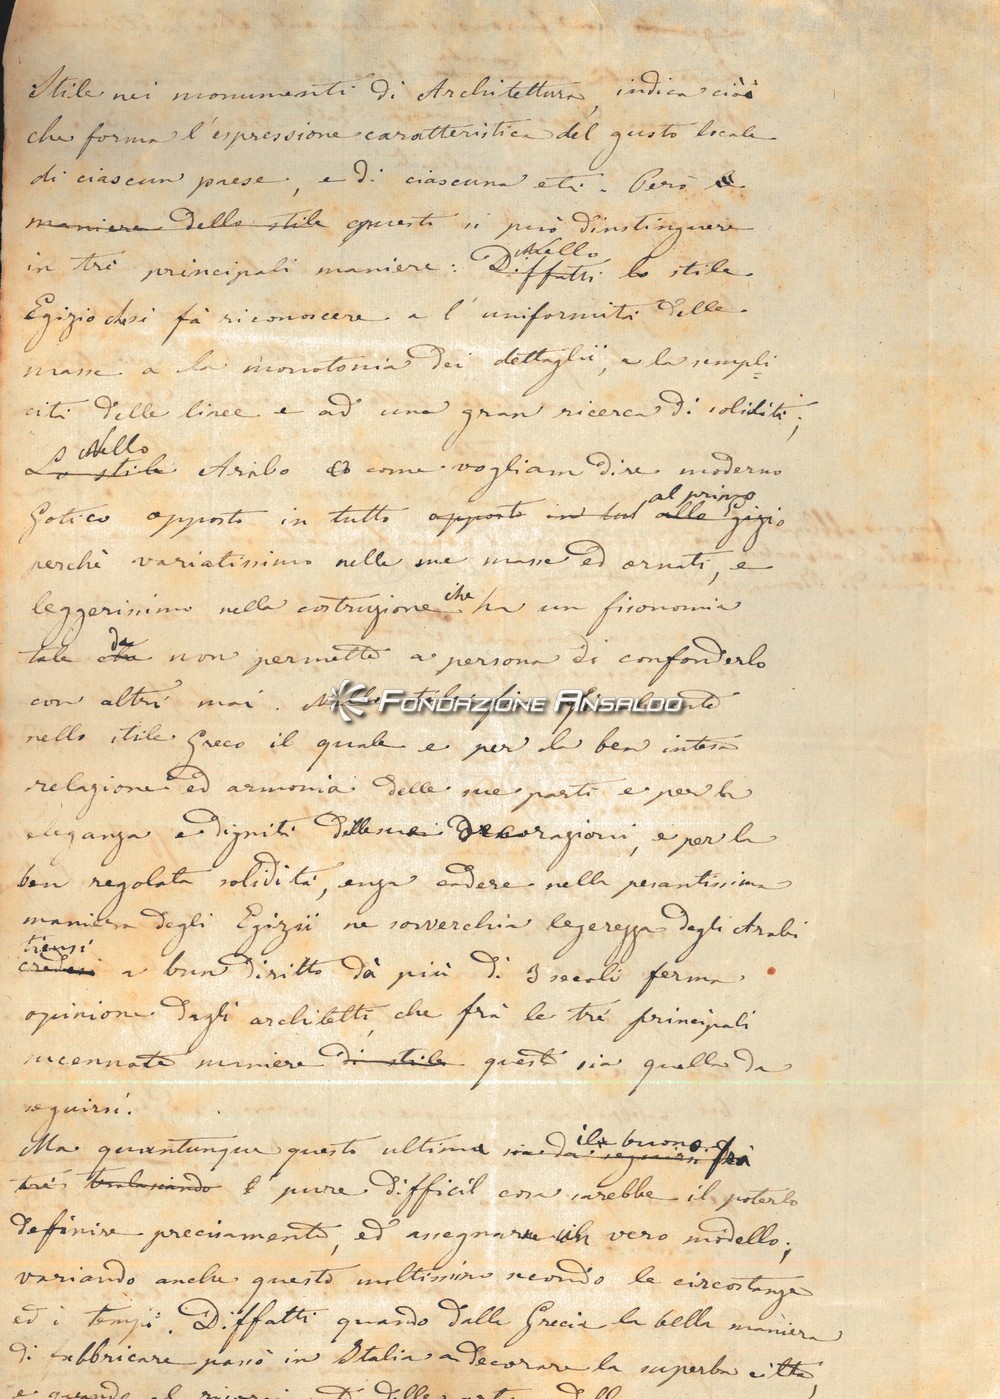 Stile nei monumenti di Architettura, indica ciò
che forma l'espressione caratteristica del gusto locale
di ciascun paese, e di ciascuna età. Però
maniere dello stile questi si può dinstinguere
in trè principali maniere: Nello
Diffatti lo stile
Egizio che si fà riconoscere a l'uniformità delle
masse a la monotonia dei dettaglii, a la sempli
cità delle linee e ad una gran ricerca di solidità;
Nello
Lo stile Arabo o come vogliam dire moderno
al primo
Gotico opposto in tutto opposto in tut allo Egizio
perchè variatissimo nelle sue masse ed ornati, e
leggerissimo nella costruzione che ha un fisonomia
da
tale che non permette a persona di confonderlo
con altri mai.
FONDAZIONE ANSALDO
nello stile Greco il quale e per la ben intesa
relazione ed armonia delle sue parti e per la
eleganza e dignità delle sue decorazioni, e per la
ben regolata solidità, senza cadere nella pesantissima
maniera degli Egizii ne soverchia legerezza degli Arabi
tiensi
credesi a buon diritto da più di 3 secoli ferma
opinione dagli architetti, che frà le trè principali
succennate maniere di stile questi sia quella da
seguirsi.
il buono
Ma quantunque questo ultima sia da seguirsi frà
trè tralasciando è pure difficil cosa sarebbe il poterlo
definire precisamente, ed assegnare un vero modello;
variando anche questo moltissimo secondo le circostanze
ed i tempi. Diffatti quando dalla Grecia la bella maniera
di fabbricare passò in Italia a decorare la superba città
e quando al